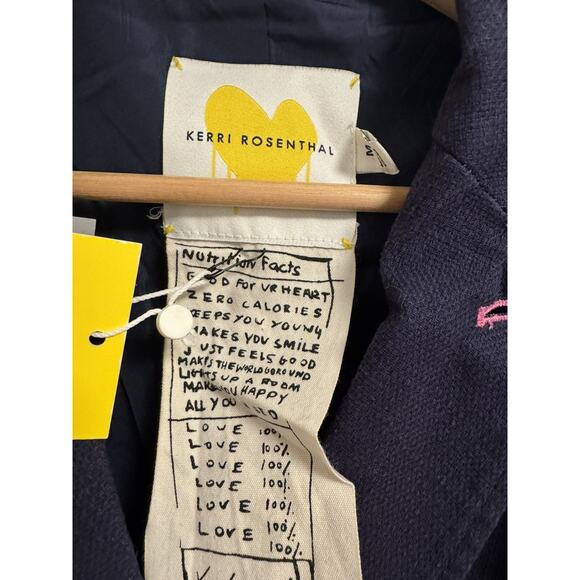 KERRI ROSENTHAL
M
Nutrition Facts
GOOD FOR UR HEART
ZERO CALORIES
KEEPS YOU YOUNG
MAKES YOU SMILE
JUST FEELS GOOD
MAKES THE WORLD GO ROUND
LIGHTS UP A ROOM
MAKES YOU HAPPY
ALL YOU
LOVE 100%
LOVE 100%
LOVE 100%
LOVE 100%
LOVE 100%
LOVE 100%